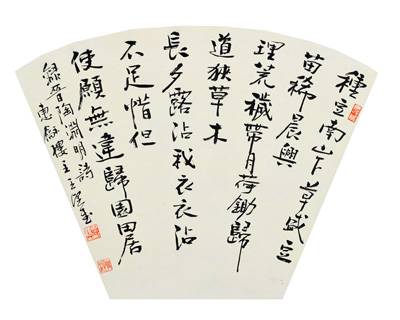 種豆南山下草盛豆
苗稀晨興
理荒穢帶月荷鋤歸
道狹草木
長夕露沾我衣衣沾
不足惜但
使願無違歸園田居
錄晉陶淵明詩
樓主王